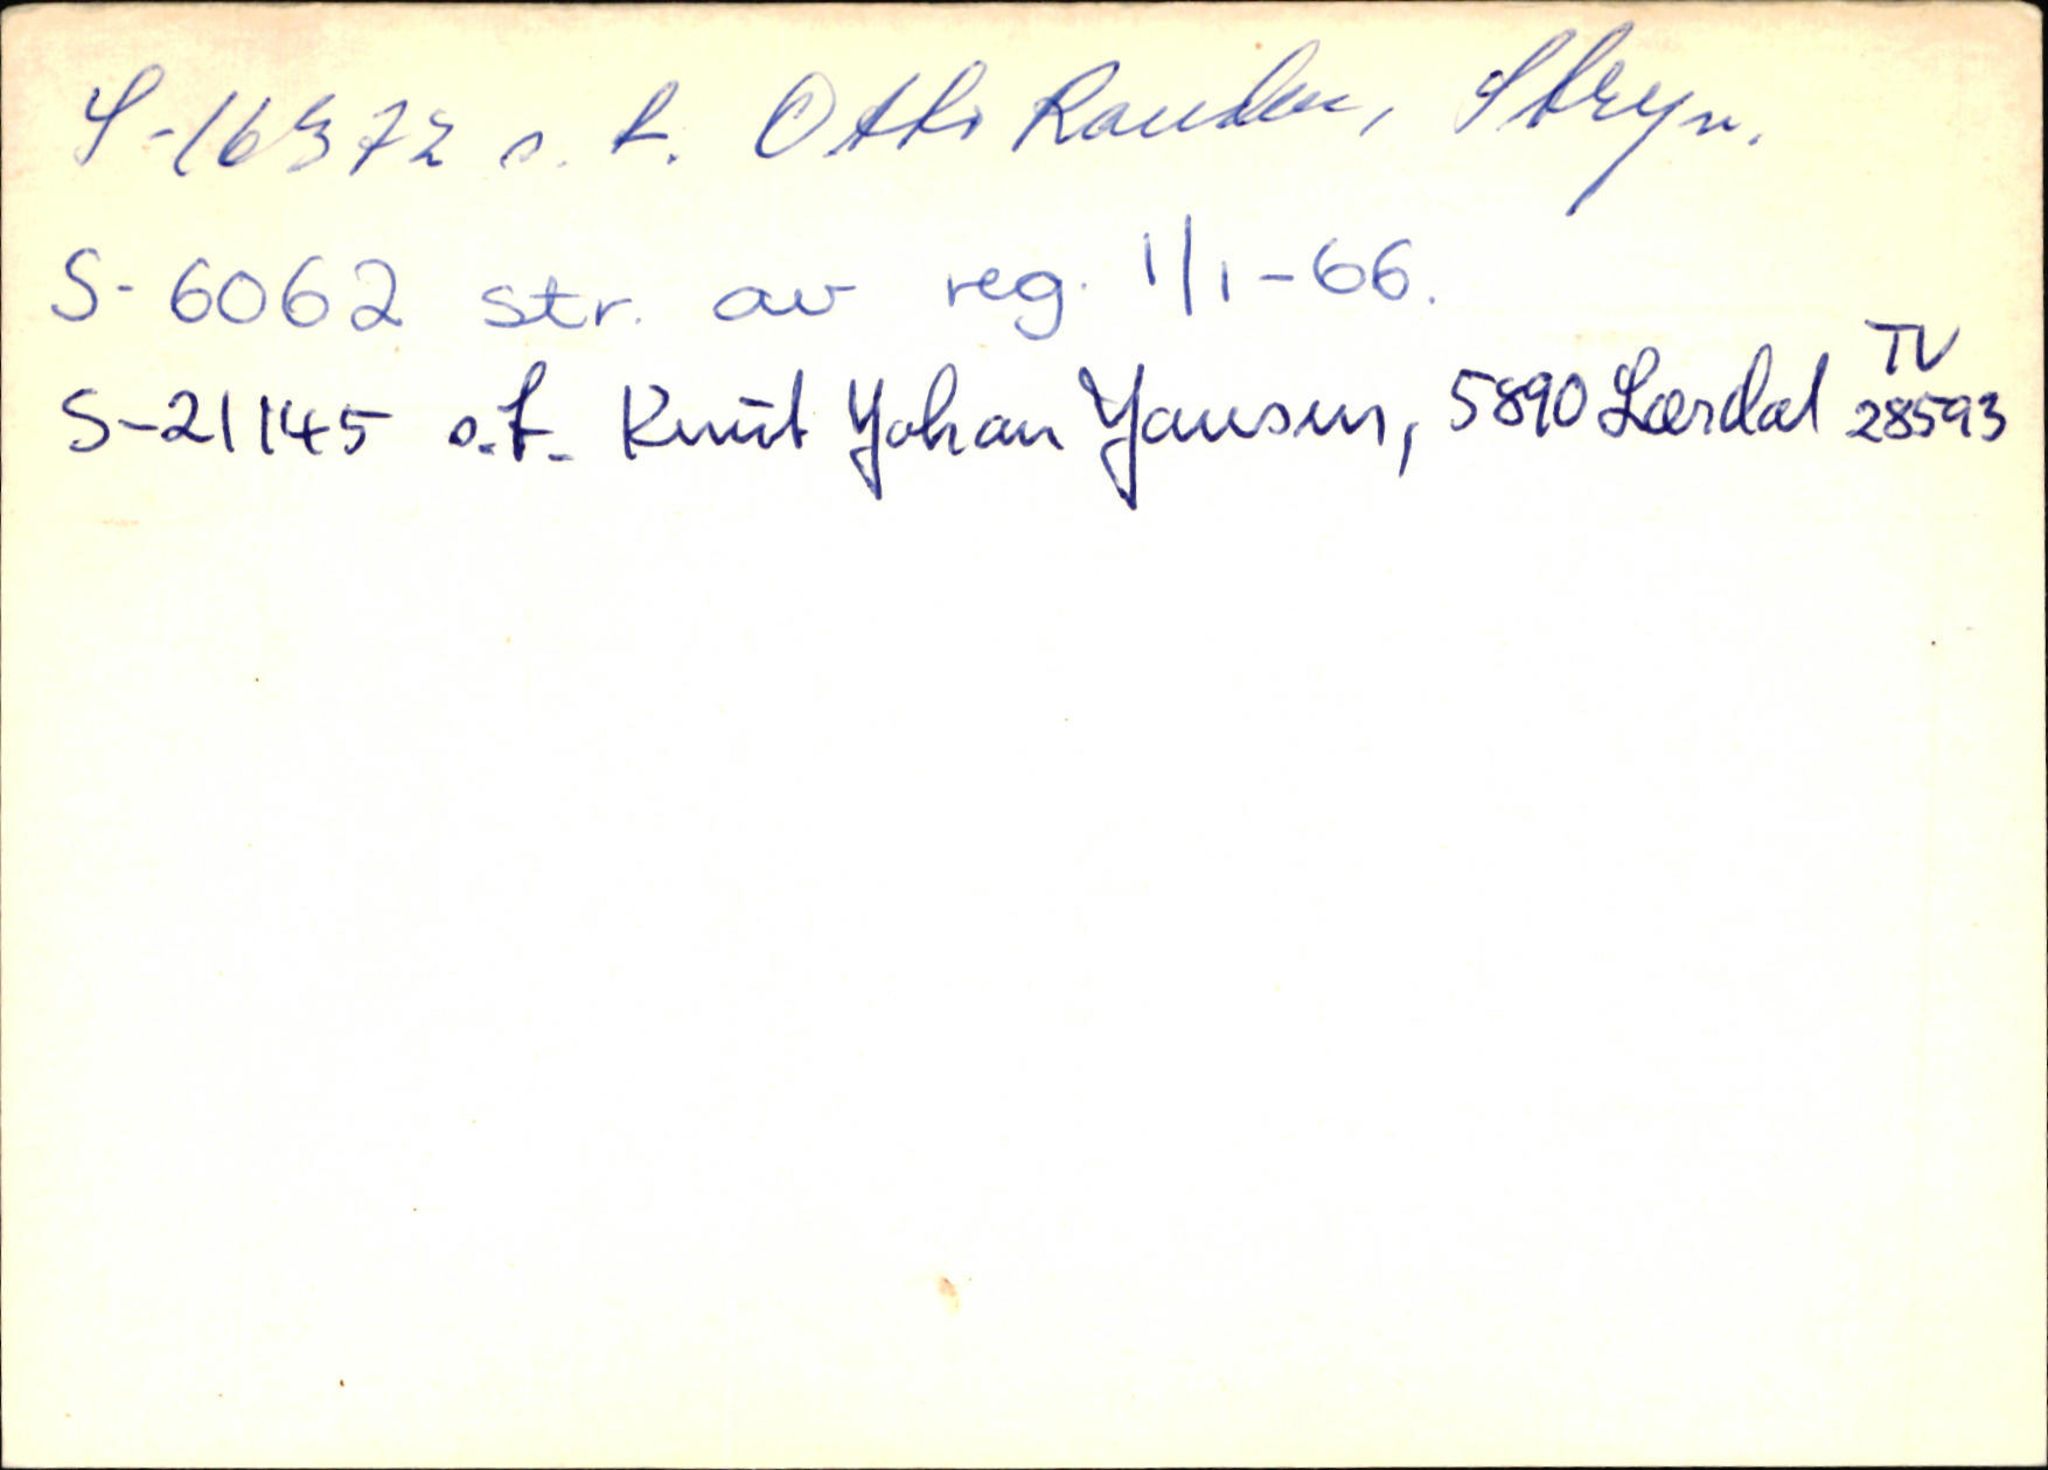 S-16372 o.t. Otto Randen, Stryn.
S-6062 str. av reg. 1/1-66.
TV
S-21145 o.t. Knut Johan Jansen, 5890 Lærdal 28593